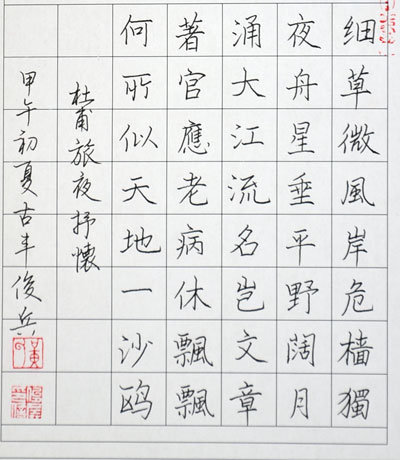 细草微風岸危檣獨
夜舟星垂平野阔月
涌大江流名岂文章
著官應老病休飄飄
何所似天地一沙鸥
杜甫旅夜抒懷
甲午初夏古丰俊兵